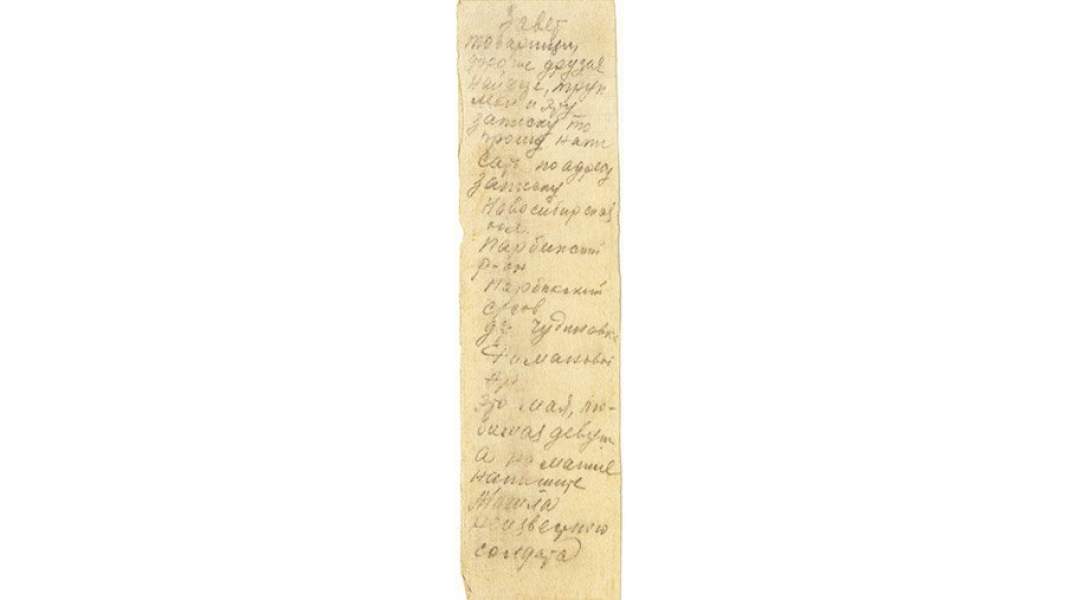 Завет
товарищи,
друзья
найдце, труп
мой и эту
записку то
прошу напи
сать по адресу
записку
Новосибирская
обл.
Парбинский
р-он
Парбинский
с/сов
д. Чудиновка
Фоминовой
это мая, лю-
бимая девуш
а на магиле
напишите
Магила
неизвесного
солдата